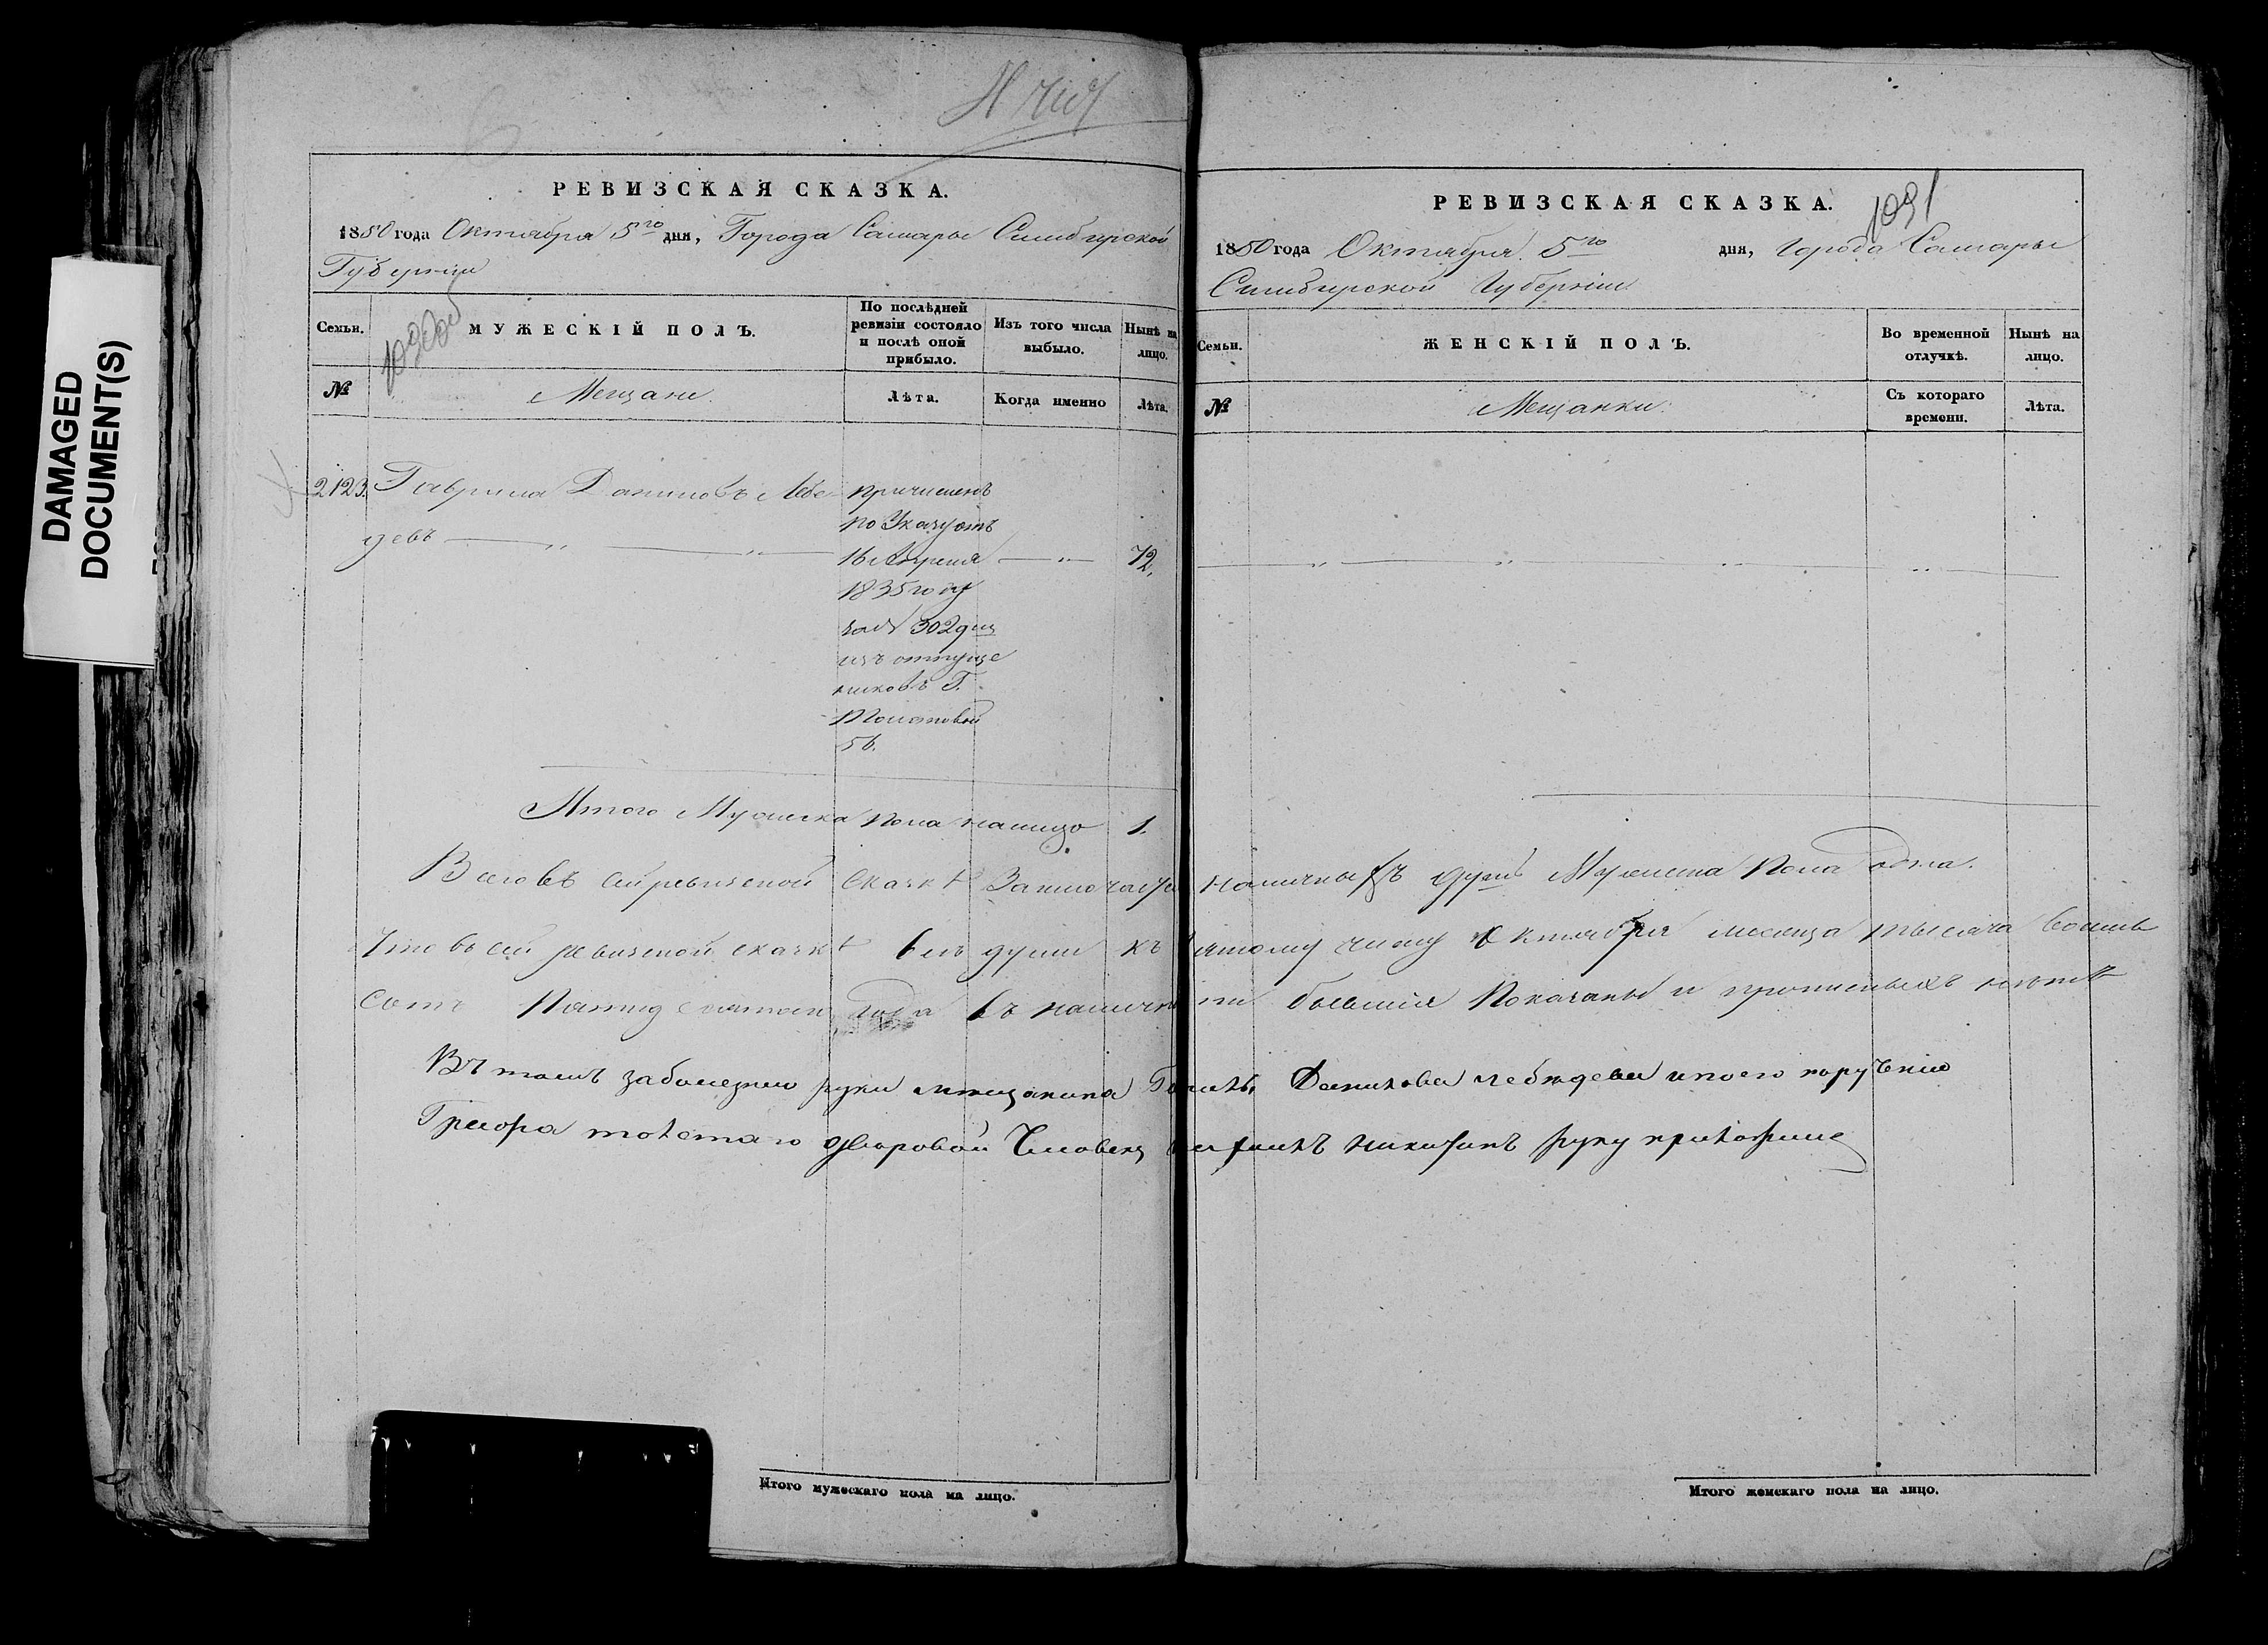 DAMAGED
DOCUMENT(S)
РЕВИЗСКАЯ СКАЗКА.
1850 года Октября 5го дня, Города Самары Симбирской
Губернии
Семьи.
МУЖЕСКІЙ ПОЛЪ.
По послѣдней
ревизіи состояло
и послѣ оной
прибыло.
Изъ того числа
выбыло.
Нынѣ на
лицо.
№
Мещане.
Лѣта.
Когда именно
Лѣта.
2123. Гаврила Даниловъ Лебе-
девъ
причисленъ
по Указу отъ
16 Апреля
1835 году
за № 302
изъ отпуще
никовъ Г.
56.
72.
Итого Мужеска пола налицо 1.
РЕВИЗСКАЯ СКАЗКА.
1091
1850 года Октября 5го дня, Города Самары
Симбирской Губерніи
Семьи.
ЖЕНСКІЙ ПОЛЪ.
Во временной
отлучкѣ.
Нынѣ на
лицо.
№
Мещанки.
Съ котораго
времени.
Лѣта.
Всего въ сей ревизской Сказкѣ Заключается наличныхъ душъ Мужеска Пола одна.
Что въ сей ревизской сказкѣ всѣ души къ пятому числу Октября месяца тысяча восемь
сотъ Пятидесятаго года въ наличности бывшія Показаны и прописныхъ нетъ
Въ томъ за болезнею руки мещанина Данилова Лебедева и по его порученію
дворовой Человекъ Никитинъ руку приложилъ
Итого мужескаго пола на лицо.
Итого женскаго пола на лицо.